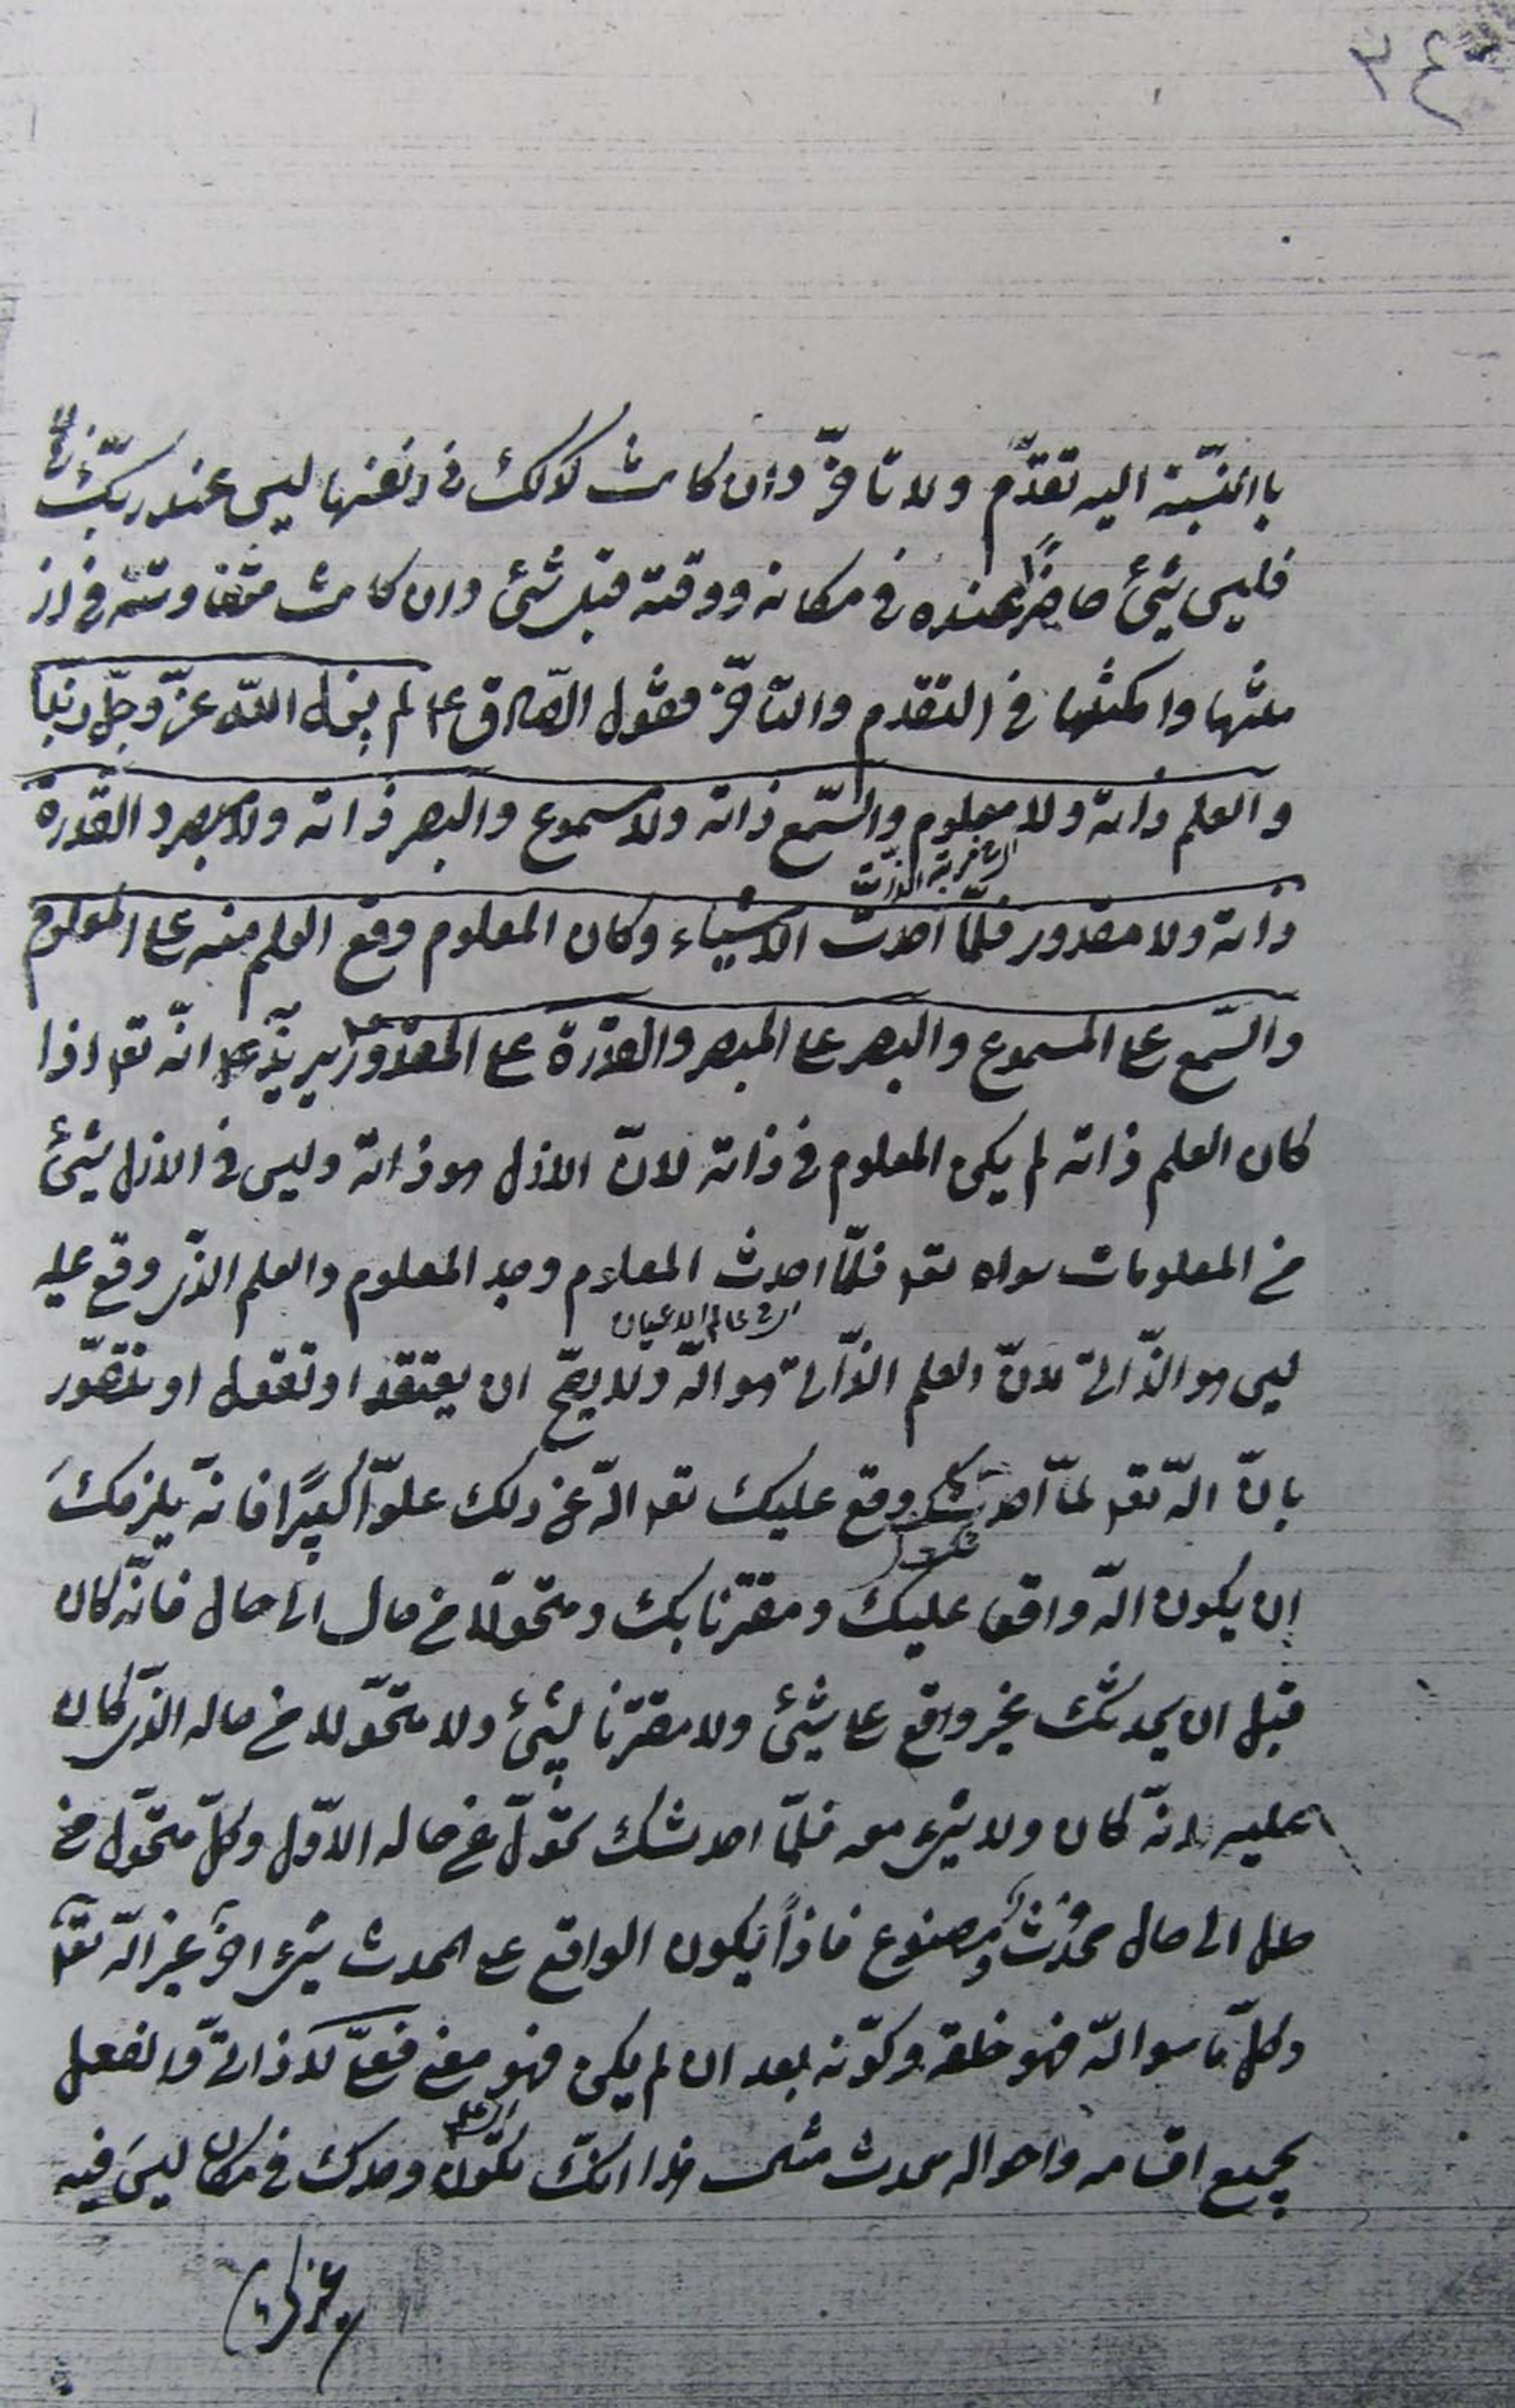 ٣٤
باالنسّبة اليه تقدّم ولا تاخّر وان كانت كذلك في انفسها ليس عند ربّك زمان
فليس شئ حاضراً عنده في مكانه ووقته قبل شئ وان كانت متفاوته في از
منتها وامكنتها في التقدم والتاخّر فقول الصّادق ع لم يزل اللّه عزّ وجلّ ربّنا
والعلم ذاته ولا معلوم والسّمع ذاته ولا مسموع والبصر ذاته ولا مبصر والقدرة
اي في رتبة الذّات
ذاته ولا مقدور فلمّا احدث الاشياء وكان المعلوم وقع العلم منه على المعلوم
والسّمع على المسموع والبصر على المبصر والقدرة على المقدور يريد ع انّه تع اذا
كان العلم ذاته لم يكن المعلوم في ذاته لانّ الازل هو ذاته وليس في الازل شئ
من المعلومات سواه تع فلمّا احدث المعلوم وجد المعلوم والعلم الذّى وقع عليه
اي في عالم الاعيان
ليس هو الذّاتى لانّ العلم الذّاتى هو اللّه ولا يصحّ ان يعتقد او تعقل او تتصوّر
بانّ اللّه تع لمّا احدثك وقع عليك تع اللّه عن ذلك علوّاً كبيرًا فانّه يلزمكَ
ان يكون اللّه واقعا عليك ومقترنا بك ومتحوّلا من حال الى حال فانّه كان
قبل ان يحدثك غير واقع على شئ ولا مقترنا بشئ ولا متحوّلا من حاله الذّى كان
عليه لانّه كان ولا شئ معه فلمّا احدثك تحوّل عن حاله الاوّل وكلّ متحوّل من
حال الى حال محدث ومصنوع فاذاً يكون الواقع على المحدث شئ اخر غير اللّه تع
وكلّ ما سوا اللّه فهو خلقه وكوّنه بعد ان لم يكن فهو معنى فعلى لا ذاتىّ والفعل
بجميع اقسامه واحواله محدث مثل هذا انّك تكون وحدك في مكان ليسَ فيه